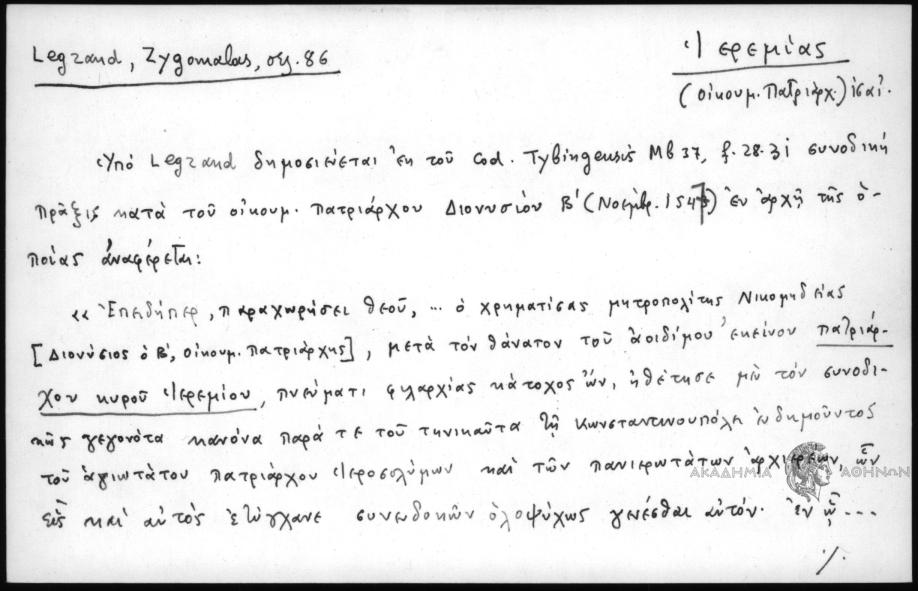 Legrand, Zygomalas, σελ. 86
Ἱερεμίας
(οἰκουμ. Πατριάρχ.)
Ὑπό Legrand δημοσιεύεται ἐκ τοῦ Cod. Tybingensis Mb 37, f. 28-31 συνοδική
πρᾶξις κατά τοῦ οἰκουμ. πατριάρχου Διονυσίου Β' (Νοέμβρ. 1547) ἐν ἀρχῇ τῆς ὁ-
ποίας ἀναφέρεται:
«Ἐπειδήπερ, παραχωρήσει θεοῦ, ... ὁ χρηματίσας μητροπολίτης Νικομηδείας
[Διονύσιος ὁ Β', οἰκουμ. πατριάρχης], μετά τόν θάνατον τοῦ ἀοιδίμου ἐκείνου πατριάρ-
χου κυροῦ Ἱερεμίου, πνεύματι φιλαρχίας κάτοχος ὤν, ἠθέτησε μέν τόν συνοδι-
κῶς γεγονότα κανόνα παρά τε τοῦ τηνικαῦτα τῇ Κωνσταντινουπόλει ἐνδημοῦντος
τοῦ ἁγιωτάτου πατριάρχου Ἱεροσολύμων καί τῶν πανιερωτάτων ἀρχιερέων, ὧν
εἷς καί αὐτός ἐτύγχανε συνευδοκῶν ὁλοψύχως γενέσθαι αὐτόν. Ἐν ᾧ ...
./.
ΑΚΑΔΗΜΙΑ ΑΘΗΝΩΝ